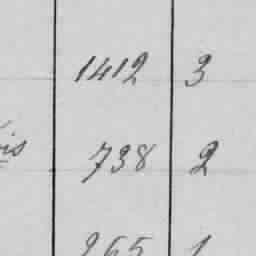 1412 3
738 2
265 1